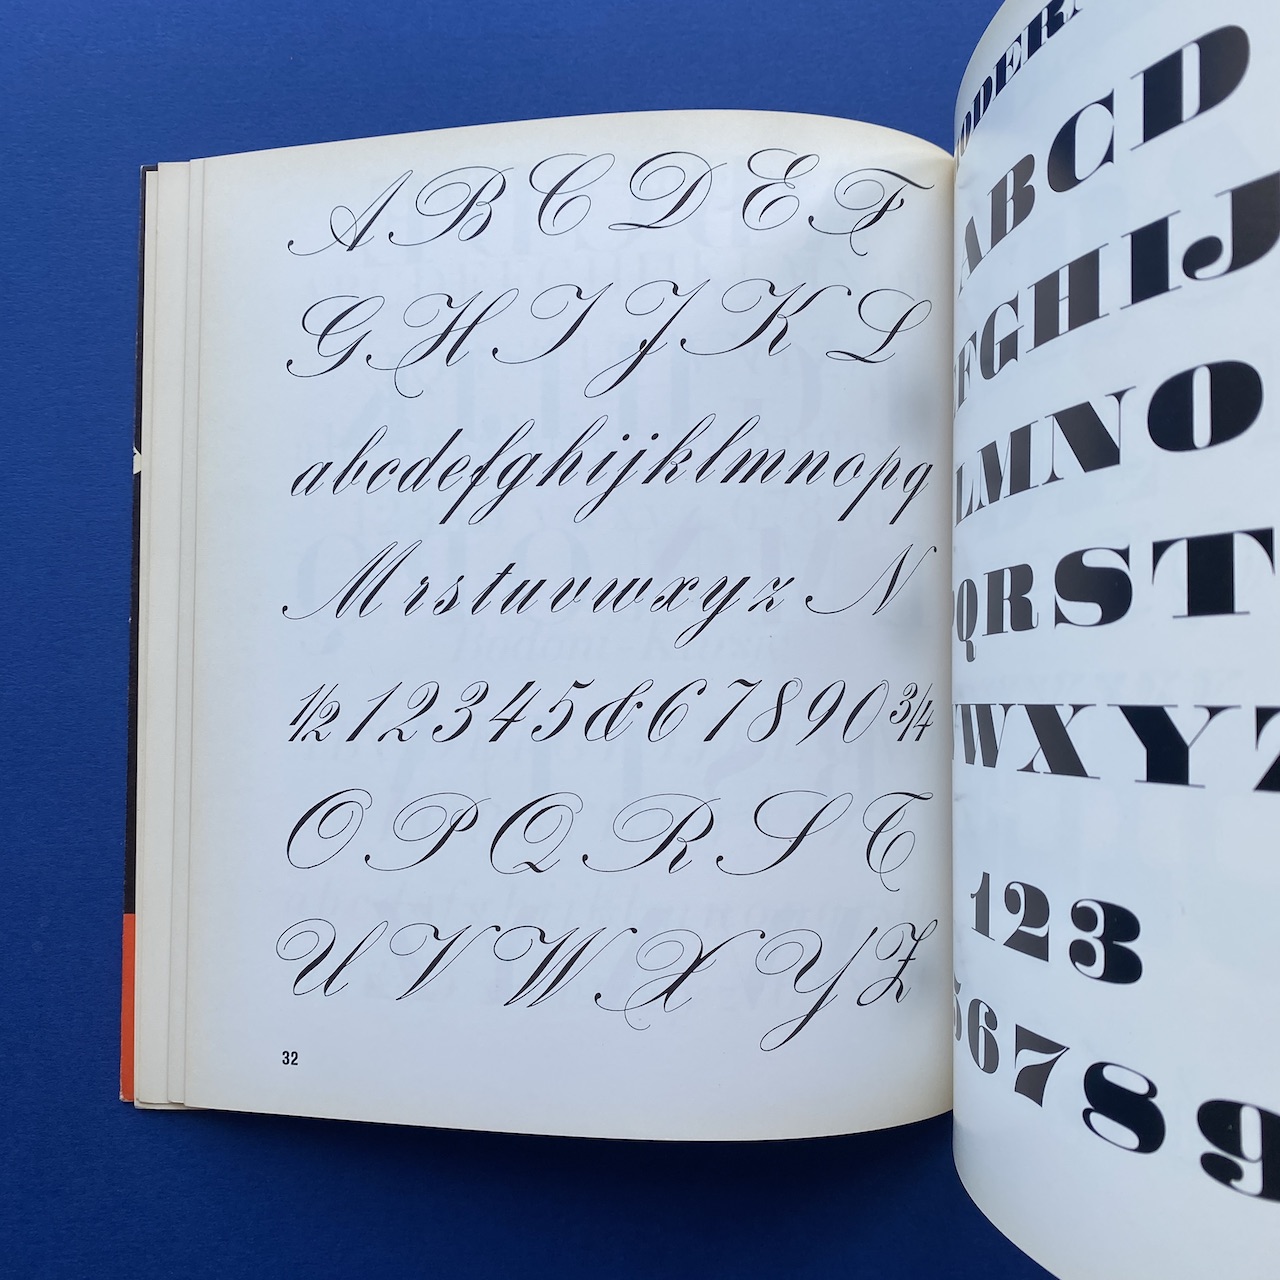 A B C D E F
G H I J K L
abcdefghijklmnopq
M rstuvwxyz N
½ 1 2 3 4 5 & 6 7 8 9 0 ¾
O P Q R S T
U V W X Y Z
32
ABCD
FGHIJ
LMNO
QRST
WXYZ
123
56789